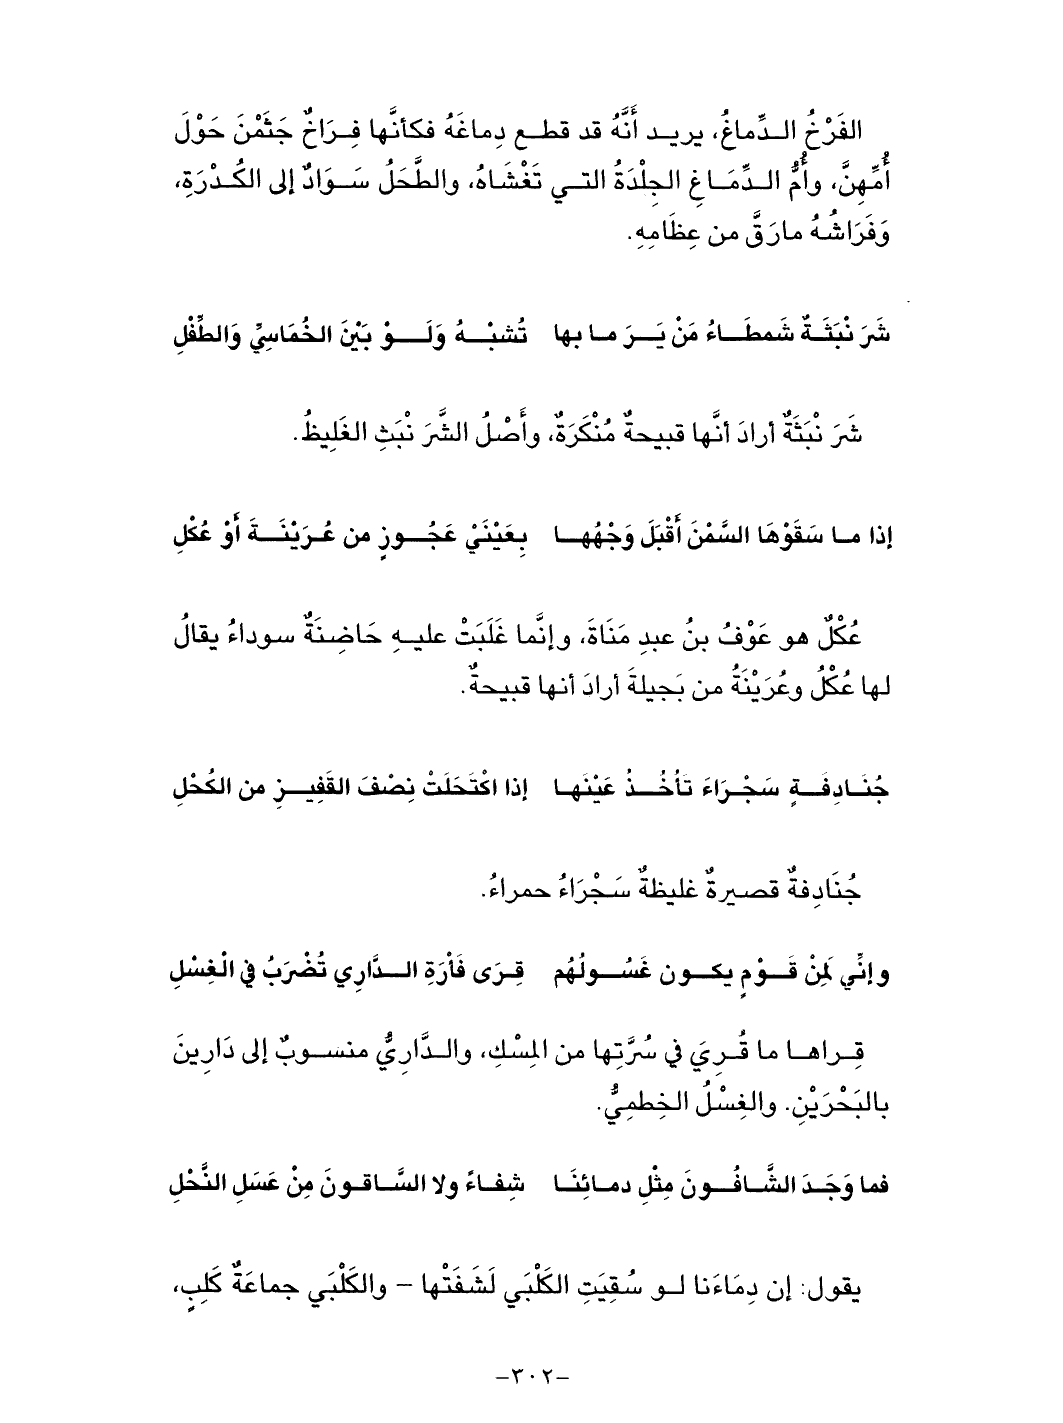 الفَرْخُ الـدِّماغُ، يريـد أَنَّهُ قد قطـع دِماغَهُ فكأنَّها فِـرَاخٌ جَثَمْنَ حَوْلَ
أُمِّهِنَّ، وأُمُّ الـدِّمَـاغِ الجِلْدَةُ التـي تَغْشَاهُ، والطَّحَلُ سَـوَادٌ إلى الكُـدْرَةِ،
وَفَرَاشُهُ مارَقَّ من عِظَامِهِ.
شَرَ نْبَثَـةٌ شَمطَـاءُ مَنْ يَـرَ مـا بها تُشبْـهُ وَلَـوْ بَيْنَ الخُمَاسِيِّ وَالطِّفْلِ
شَرَ نْبَثَةٌ أرادَ أنَّها قبيحةٌ مُنْكَرَةٌ، وأَصْلُ الشَّرَ نْبَثِ الغَلِيظُ.
إذا مـا سَقَوْهَا السَّمْنَ أَقْبَلَ وَجْهُهـا بِعَيْنَيْ عَجُـوزٍ من عُـرَيْنَـةَ أَوْ عُكْلِ
عُكْلٌ هو عَوْفُ بنُ عبدِ مَنَاةَ، وإنَّما غَلَبَتْ عليـهِ حَاضِنَةٌ سوداءُ يقالُ
لها عُكْلُ وعُرَيْنَةُ من بَجيلةَ أرادَ أنها قبيحةٌ.
جُنَـادِفَـةٍ سَجْـرَاءَ تَأخُـذُ عَيْنَهـا إذا اكْتَحَلَتْ نِصْفَ القَفِيـزِ من الكُحْلِ
جُنَادِفةٌ قصيرةٌ غليظةٌ سَجْرَاءُ حمراءُ.
وإنِّي لَمِنْ قَـوْمٍ يكـون غَسُـولُهُم قِـرَى فَأرَةِ الـدَّارِي تُضْرَبُ في الْغِسْلِ
قِـراهـا ما قُـرِيَ في سُرَّتِها من المِسْكِ، والـدَّارِيُّ منسـوبٌ إلى دَارِينَ
بالبَحْرَيْنِ. والغِسْلُ الخِطمِيُّ.
فما وَجَـدَ الشَّـافُـونَ مِثْلِ دمـائِنَـا شِفـاءً ولا السَّاقـونَ مِنْ عَسَلِ النَّحْلِ
يقول: إن دِمَاءَنا لـو سُقِيَتِ الكَلْبَي لَشَفَتْها – والكَلْبَي جماعَةُ كَلِبٍ،
–٣٠٢–